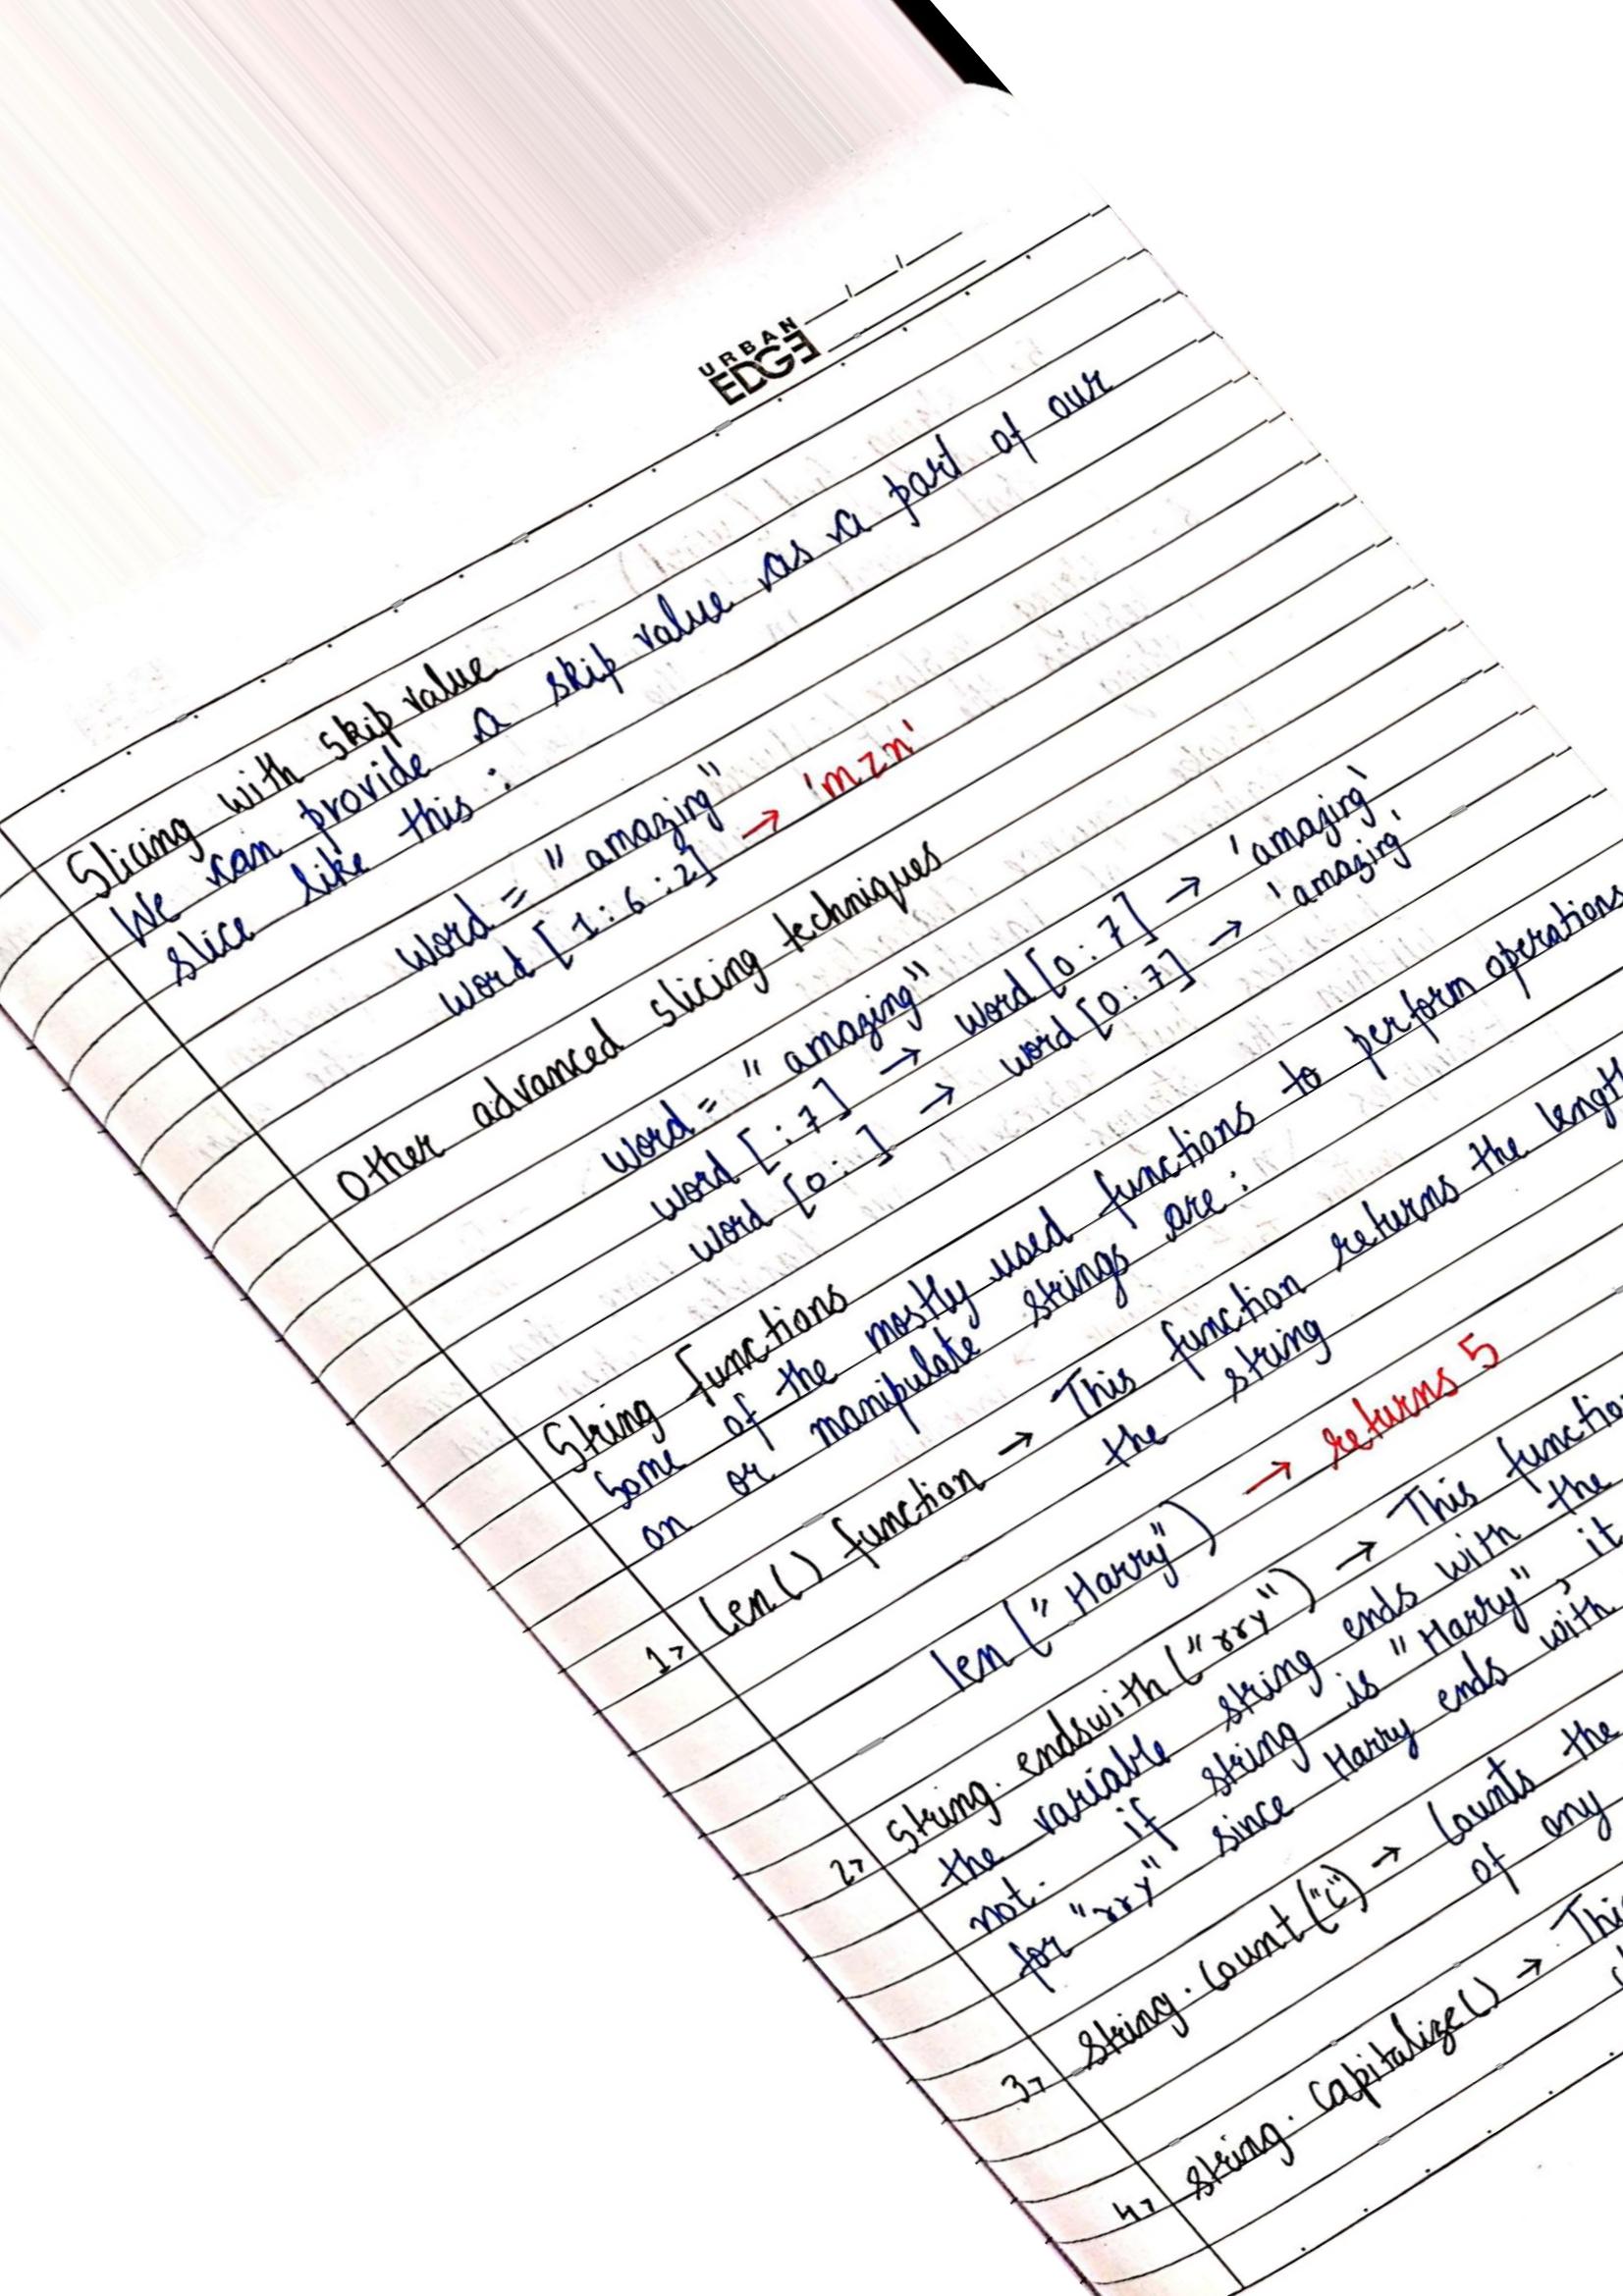 URBAN
EDGE
Slicing with skip value
We can provide a skip value as a part of our
slice like this :
Word = "amazing"
Word [1:6:2] → 'mzn'
Other advanced slicing techniques
Word = "amazing"
Word [:7] → word [0:7] → 'amazing'
Word [0:] → word [0:7] → 'amazing'
String functions
Some of the mostly used functions to perform operations
on or manipulate strings are :
1> len() function → This function returns the length
the string
len ("Harry") → returns 5
2> String. endswith ("rry") → This function
the variable string ends with the
not. if string is "Harry", it
for "rry" since Harry ends with
3> String. Count ("c") → Counts the
of any
4> String. Capitalize() → This